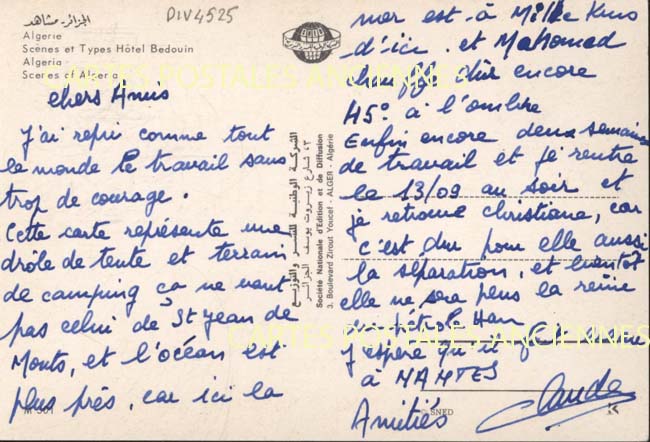 الجزائر - مشاهد
Algerie
Scènes et Types Hôtel Bedouin
Algeria
Scenes of Algeria
DIV4525
chers Amis
J'ai repri comme tout
le monde le travail sans
trop de courage.
Cette carte représente une
drôle de tente et terrain
de camping ça ne vaut
pas celui de St Jean de
Monts, et l'océan est
plus près, car ici la
M 301
الشركة الوطنية للنشر والتوزيع
٣، شارع زيروت يوسف - الجزائر
Société Nationale d'Edition et de Diffusion
3, Boulevard Zirout Youcef - ALGER - Algérie
mer est à Mille Kms
d'ici et Mahomed
chauffe dur encore
45° à l'ombre
Enfin encore deux semaines
de travail et je rentre
le 13/09 au soir et
je retrouve christiane, car
c'est dur pour elle aussi
la séparation, et bientôt
elle ne sera plus la reine
du pét
J'espère qu'il f
à NANTES
Amitiés
Claude
© SNED
CARTES POSTALES ANCIENNES
CARTES POSTALES ANCIENNES